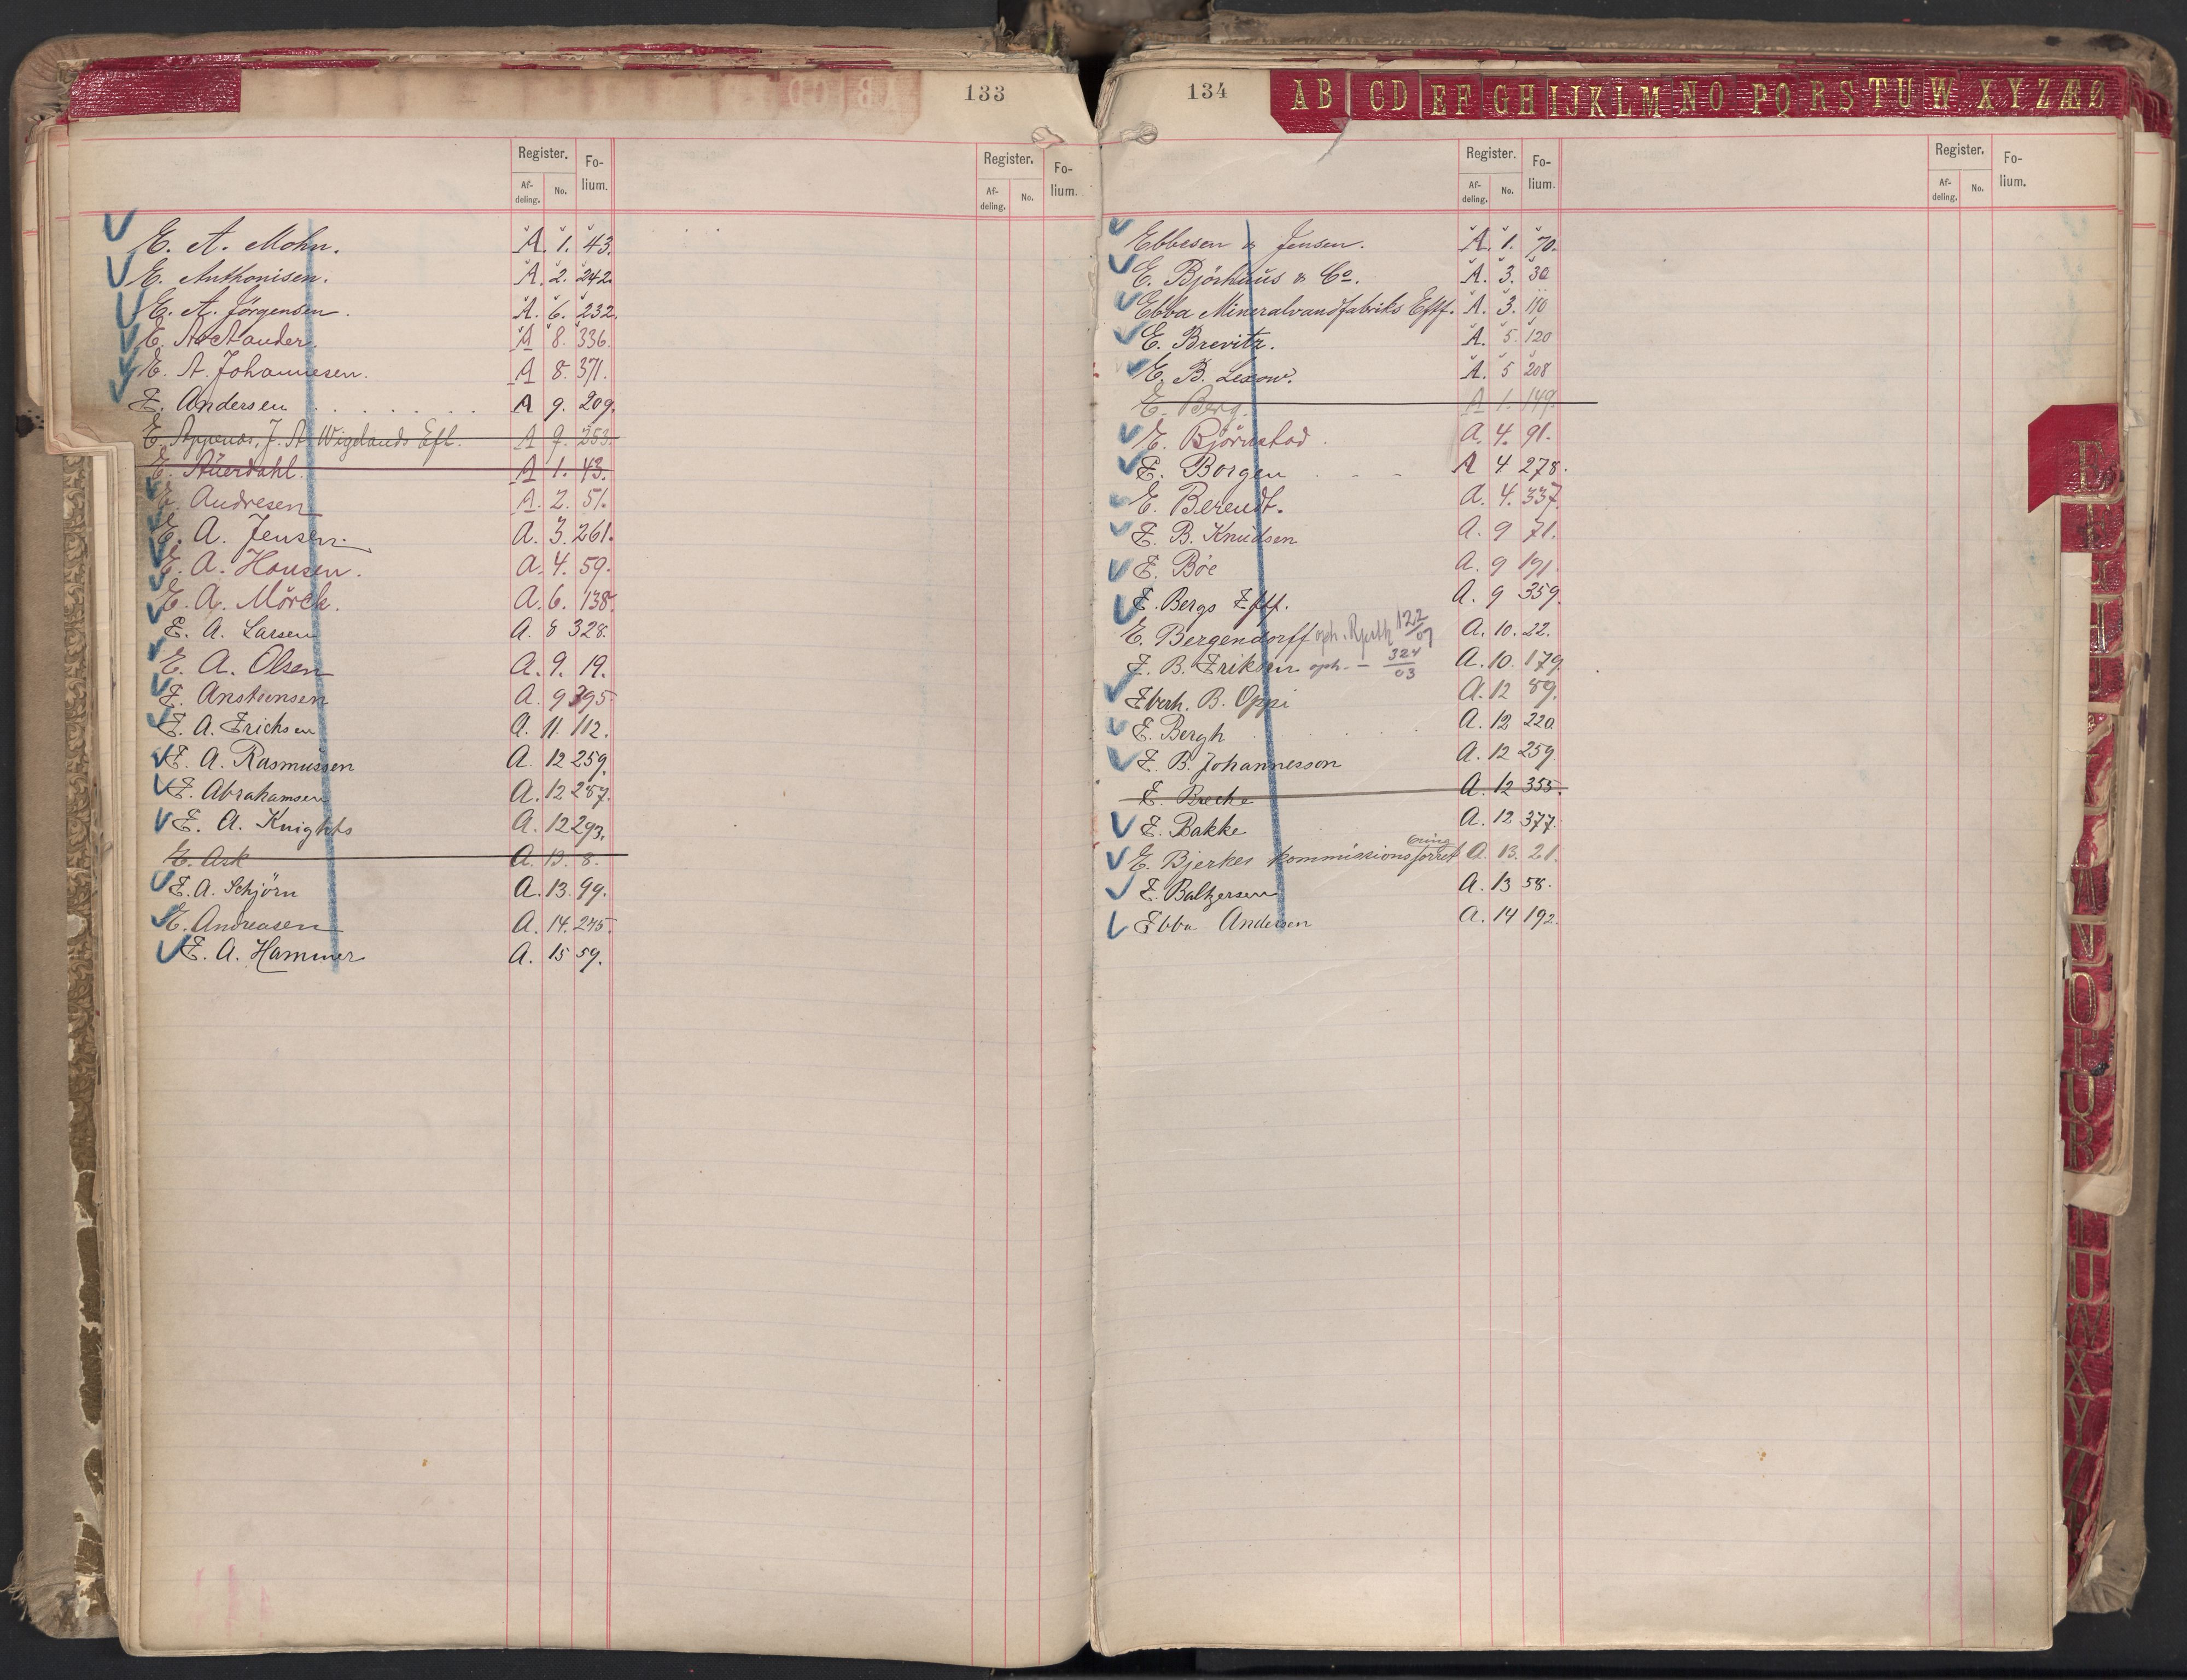 133
Register. Fo-lium. Register. Fo-lium.
Af-deling. No. Af-deling. No.
E. A. Mohn. A. 1. 43.
E. Anthonisen. A. 2. 242.
E. A. Jörgensen. A. 6. 232.
E. A. Johannesen. A 8. 371.
E. Andersen A 9. 209.
E. Appenæs, J. A. Wigelands Eft. A 9. 253.
E. Auerdahl. A 1. 43.
E. Andresen A. 2. 51.
E. A. Jensen. A. 3. 261.
E. A. Hansen. A. 4. 59.
E. A. Mörck. A. 6. 138.
E. A. Larsen A. 8 328.
E. A. Olsen A. 9. 19.
E. Anstensen A. 9 395.
E. A. Erichsen A. 11. 112.
E. A. Rasmussen A. 12 259.
E. Abrahamsen A. 12 287.
E. A. Knights A. 12 293.
E. Ask A. 13. 8.
E. A. Schjörn A. 13. 99.
E. Andreasen A. 14. 245.
E. A. Hammer A. 15 59.
134
AB CD EF GH IJ KL MN O PQ RS TU W XYZ ÆØ
Register. Fo-lium. Register. Fo-lium.
Af-deling. No. Af-deling. No.
Ebbesen & Jensen. A. 1. 70.
E. Björkhaus & Co. A. 3. 30
Ebba Mineralvandfabriks Eftf. A. 3. 110
E. Brevitz. A. 5. 120
E. B. Lexow. A. 5 208
E. Berg. A 1. 149.
E. Björnstad. A. 4. 91.
E. Borgen A 4 278.
E. Berendt. A. 4. 337.
E. B. Knudsen A. 9 71.
E. Böe A. 9 191.
E. Bergs Eftf. A. 9 359.
E. Bergendorff oph. 122/07 A. 10. 22.
E. B. Eriksen oph. — 324/03 A. 10. 179
Eberh. B. Oppi A. 12 89.
E. Bergh A. 12 220.
E. B. Johannesson A. 12 259.
E. Breche A. 12 355.
E. Bakke A. 12 377.
E. Bjerkes kommissionsforret A. 13. 21.
E. Baltzersen A. 13 58.
Ebba Andersen A. 14 192.
E